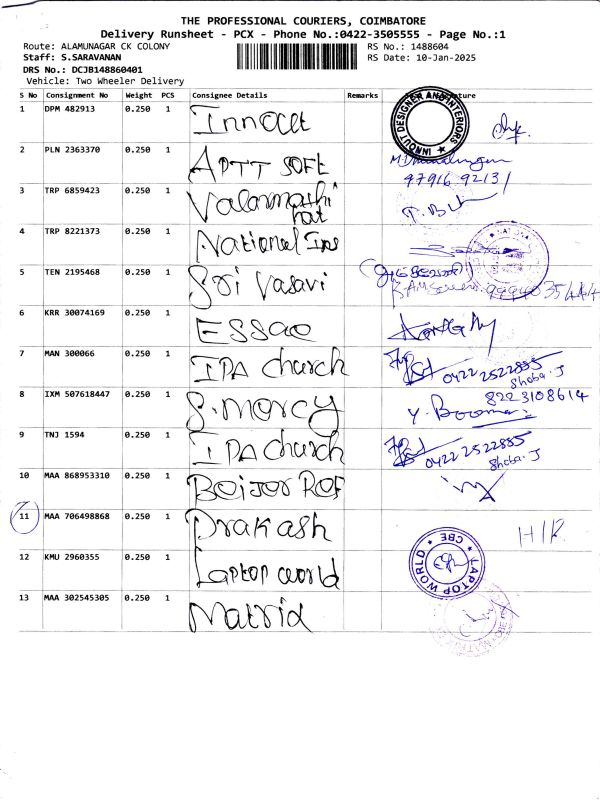 THE PROFESSIONAL COURIERS, COIMBATORE
Delivery Runsheet - PCX - Phone No.:0422-3505555 - Page No.:1
Route: ALAMUNAGAR CK COLONY
RS No.: 1488604
Staff: S.SARAVANAN
RS Date: 10-Jan-2025
DRS No.: DCJB148860401
Vehicle: Two Wheeler Delivery
S No Consignment No Weight PCS Consignee Details Remarks
1 DPM 482913 0.250 1 Innout
INNOUT DESIGNER AND INTERIORS
2 PLN 2363370 0.250 1 APTT SOFT
97916 92131
3 TRP 6859423 0.250 1 Valarmathi
4 TRP 8221373 0.250 1 National Ins
5 TEN 2195468 0.250 1 Sri Vasavi
6 KRR 30074169 0.250 1 ESSAE
7 MAN 300066 0.250 1 IPA church
0422 2522885
Shoba. J
8 IXM 507618447 0.250 1 S. mercy
8223108614
9 TNJ 1594 0.250 1 IPA church
0422 2522885
Shoba. J
10 MAA 868953310 0.250 1
11 MAA 706498868 0.250 1 Prakash
12 KMU 2960355 0.250 1 Laptop world
LAPTOP WORLD CBE
13 MAA 302545305 0.250 1 Matrix